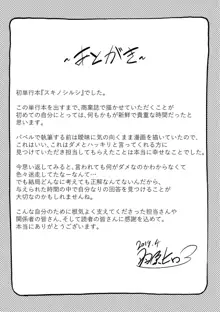 ～あとがき～
初単行本『スキノシルシ』でした。
この単行本を出すまで、商業誌で描かせていただくことが
初めての自分にとっては、何もかもが新鮮で貴重な時間だったと
思います。
バベルで執筆する前は曖昧に気の向くまま漫画を描いていたので、
これはいい、これはダメとハッキリと言ってくれる方に
見つけていただき担当してもらえたことは本当に幸せなことでした。
今思い返してみると、言われても何がダメなのかわからなくて
色々迷走してたな―なんて…。
でも結局どんなに考えても正解なんてないんだから、
与えられた時間の中で自分なりの回答を見つけることが
大切なのかもしれませんね。
こんな自分のために根気よく支えてくださった担当さんや
関係者の皆さん、そして読者の皆さんに感謝を込めて。
本当にありがとうございます。
2017.4